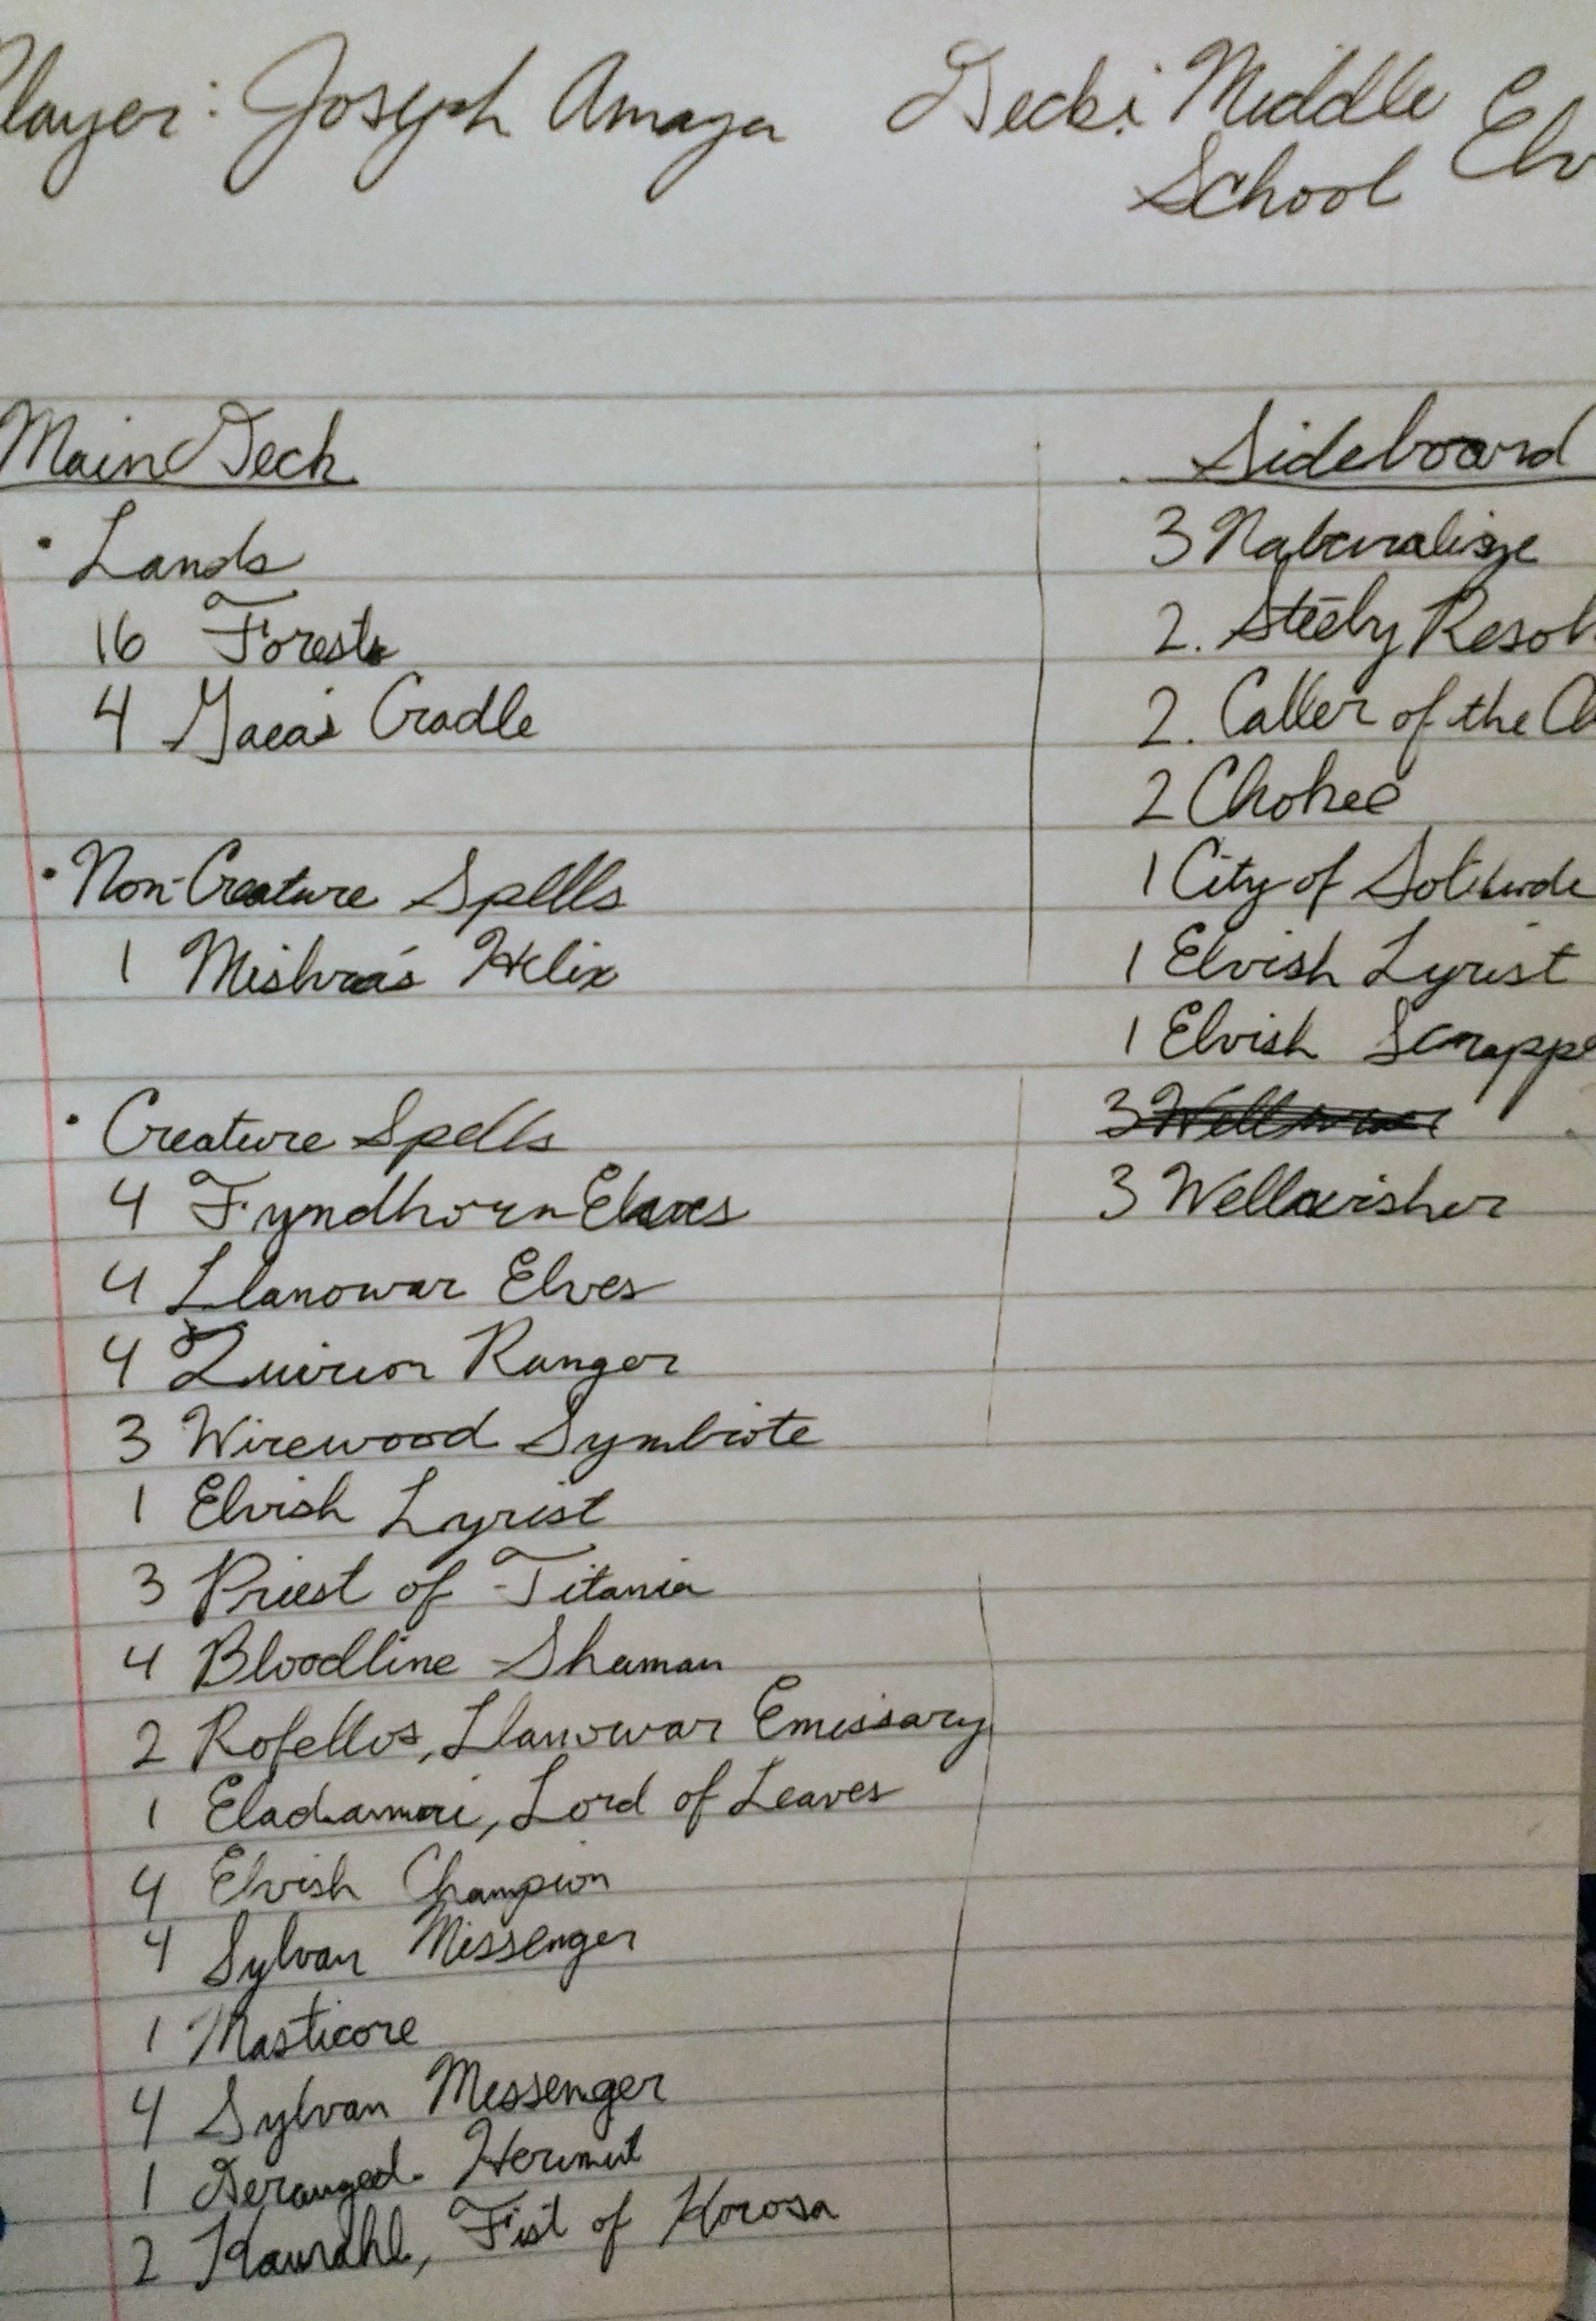 Player: Joseph Amaya Deck: Middle
School
Main Deck
• Lands
16 Forests
4 Gaea's Cradle
• Non-Creature Spells
1 Mishra's Helix
• Creature Spells
4 Fyndhorn Elves
4 Llanowar Elves
4 Quirion Ranger
3 Wirewood Symbiote
1 Elvish Lyrist
3 Priest of Titania
4 Bloodline Shaman
2 Rofellos, Llanowar Emissary
1 Eladamri, Lord of Leaves
4 Elvish Champion
4 Sylvan Messenger
1 Masticore
4 Sylvan Messenger
1 Deranged Hermit
2 Kamahl, Fist of Krosa
Sideboard
3 Naturalize
2. Steely Resol
2. Caller of the
2 Choke
1 City of Solitude
1 Elvish Lyrist
1 Elvish Scrappe
3 Wellwisher